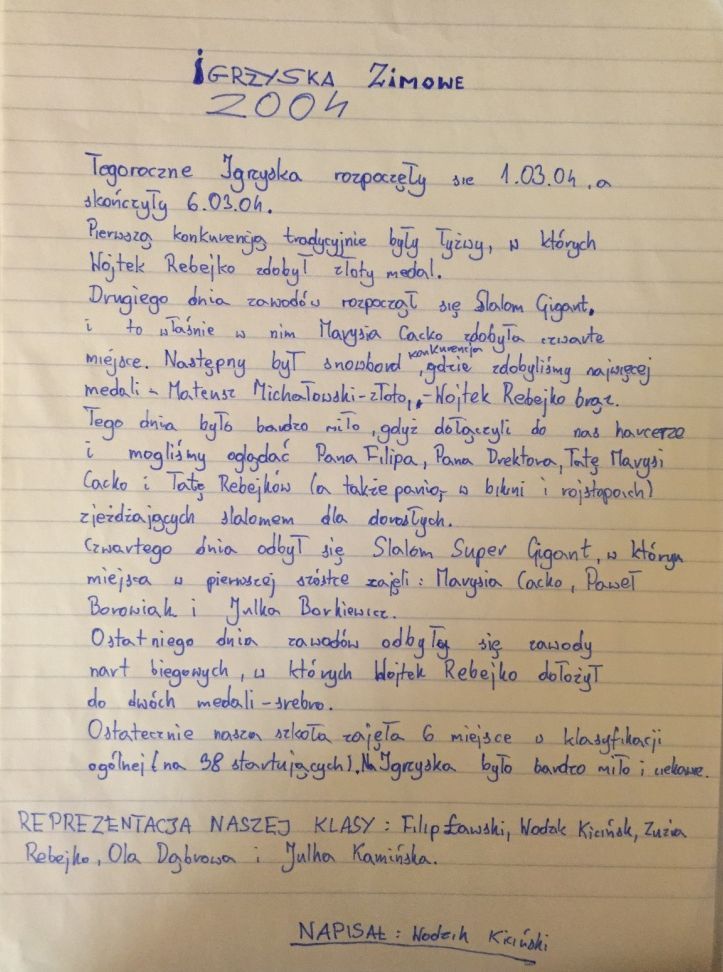 IGRZYSKA ZIMOWE
2004
Tegoroczne Igrzyska rozpoczęły sie 1.03.04, a
skończyły 6.03.04.
Pierwszą konkurencją tradycyjnie były łyżwy, w których
Wojtek Rebejko zdobył złoty medal.
Drugiego dnia zawodów rozpoczął się Slalom Gigant,
i to właśnie w nim Marysia Cacko zdobyła czwarte
miejsce. Następny był snowbord konkurencja, gdzie zdobyliśmy najwięcej
medali - Mateusz Michałowski - złoto, - Wojtek Rebejko brąz.
Tego dnia było bardzo miło, gdyż dołączyli do nas harcerze
i mogliśmy oglądać Pana Filipa, Pana Drektora, Tatę Marysi
Cacko i Tatę Rebejków (a także panią w bikini i rajstopach)
zjeżdżających slalomem dla dorosłych.
Czwartego dnia odbył się Slalom Super Gigant, w którym
miejsca w pierwszej szóstce zajęli: Marysia Cacko, Paweł
Borowiak i Julka Borkiewicz.
Ostatniego dnia zawodów odbyły się zawody
nart biegowych, w których Wojtek Rebejko dołożył
do dwóch medali - srebro.
Ostatecznie nasza szkoła zajęła 6 miejsce w klasyfikacji
ogólnej (na 38 startujących). Na Igrzyska było bardzo miło i ciekawe.
REPREZENTACJA NASZEJ KLASY: Filip Ławski, Wodzik Kicińsk, Zuzia
Rebejko, Ola Dąbrowa i Julka Kamińska.
NAPISAŁ: Wodzik Kiciński